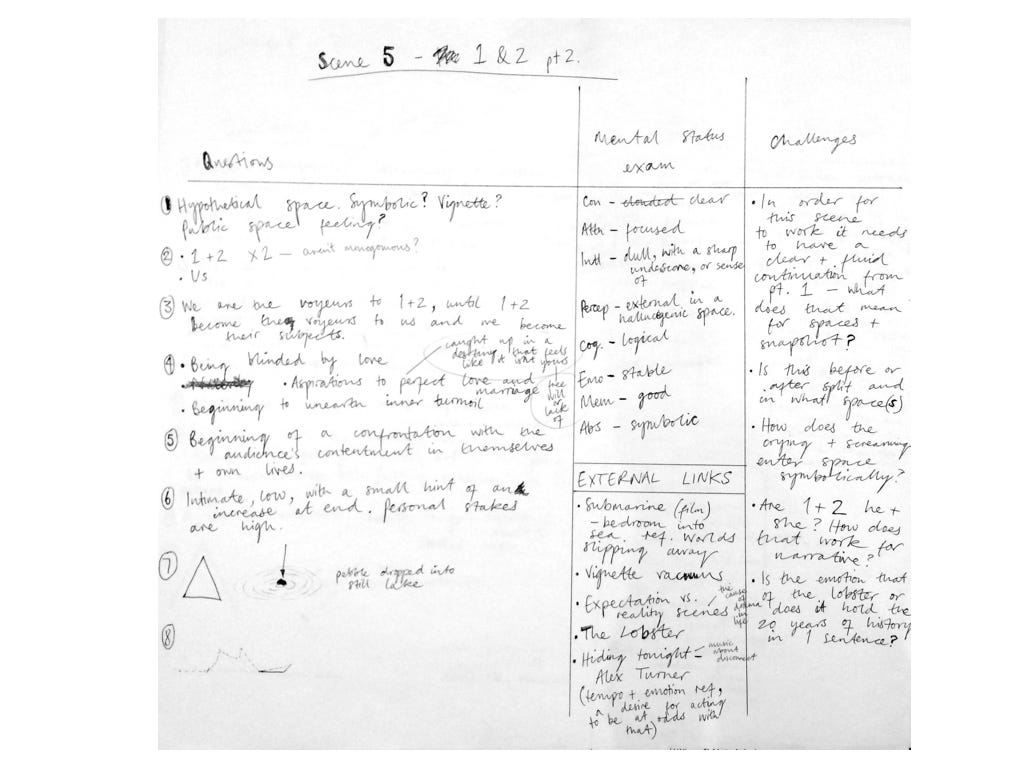 Scene 5 - 1 & 2 pt 2.
Questions
① Hypothetical space. Symbolic? Vignette?
Public space feeling?
② • 1+2 x2 — aren't monogomous?
• Us
③ We are the voyeurs to 1+2, until 1+2
become the voyeurs to us and we become
their subjects.
④ • Being blinded by love
caught up in a
destiny that feels
like it isn't yours
• Aspirations to perfect love and
marriage
free
will
or
lack
of
• Beginning to unearth inner turmoil
⑤ Beginning of a confrontation with the
audience's contentment in themselves
+ own lives.
⑥ Intimate, low, with a small hint of an
increase at end. Personal stakes
are high.
⑦
pebble dropped into
still lake
⑧
Mental Status
exam
Con - clouded clear
Attn - focused
Intl - dull, with a sharp
underscore, or sense
of
Percep - external in a
hallucogenic space.
Cog. - logical
Emo - stable
Mem - good
Abs - symbolic
EXTERNAL LINKS
• Submarine (film)
- bedroom into
sea. ref. worlds
slipping away
• Vignette vacuums
• Expectation vs.
reality scenes
the
cause
of
drama
in
life
• The Lobster
• Hiding tonight -
music
about
disconnect
Alex Turner
(tempo + emotion ref,
desire for acting
to be at odds with
that)
Challenges
• In order for
this scene
to work it needs
to have a
clear + fluid
continuation from
pt. 1 - what
does that mean
for spaces +
snapshot?
• Is this before or
after split and
in what space(s)
• How does the
crying + screaming
enter space
symbolically?
• Are 1+2 he +
she? How does
that work for
narrative?
• Is the emotion that
of the lobster or
does it hold the
20 years of history
in 1 sentence?